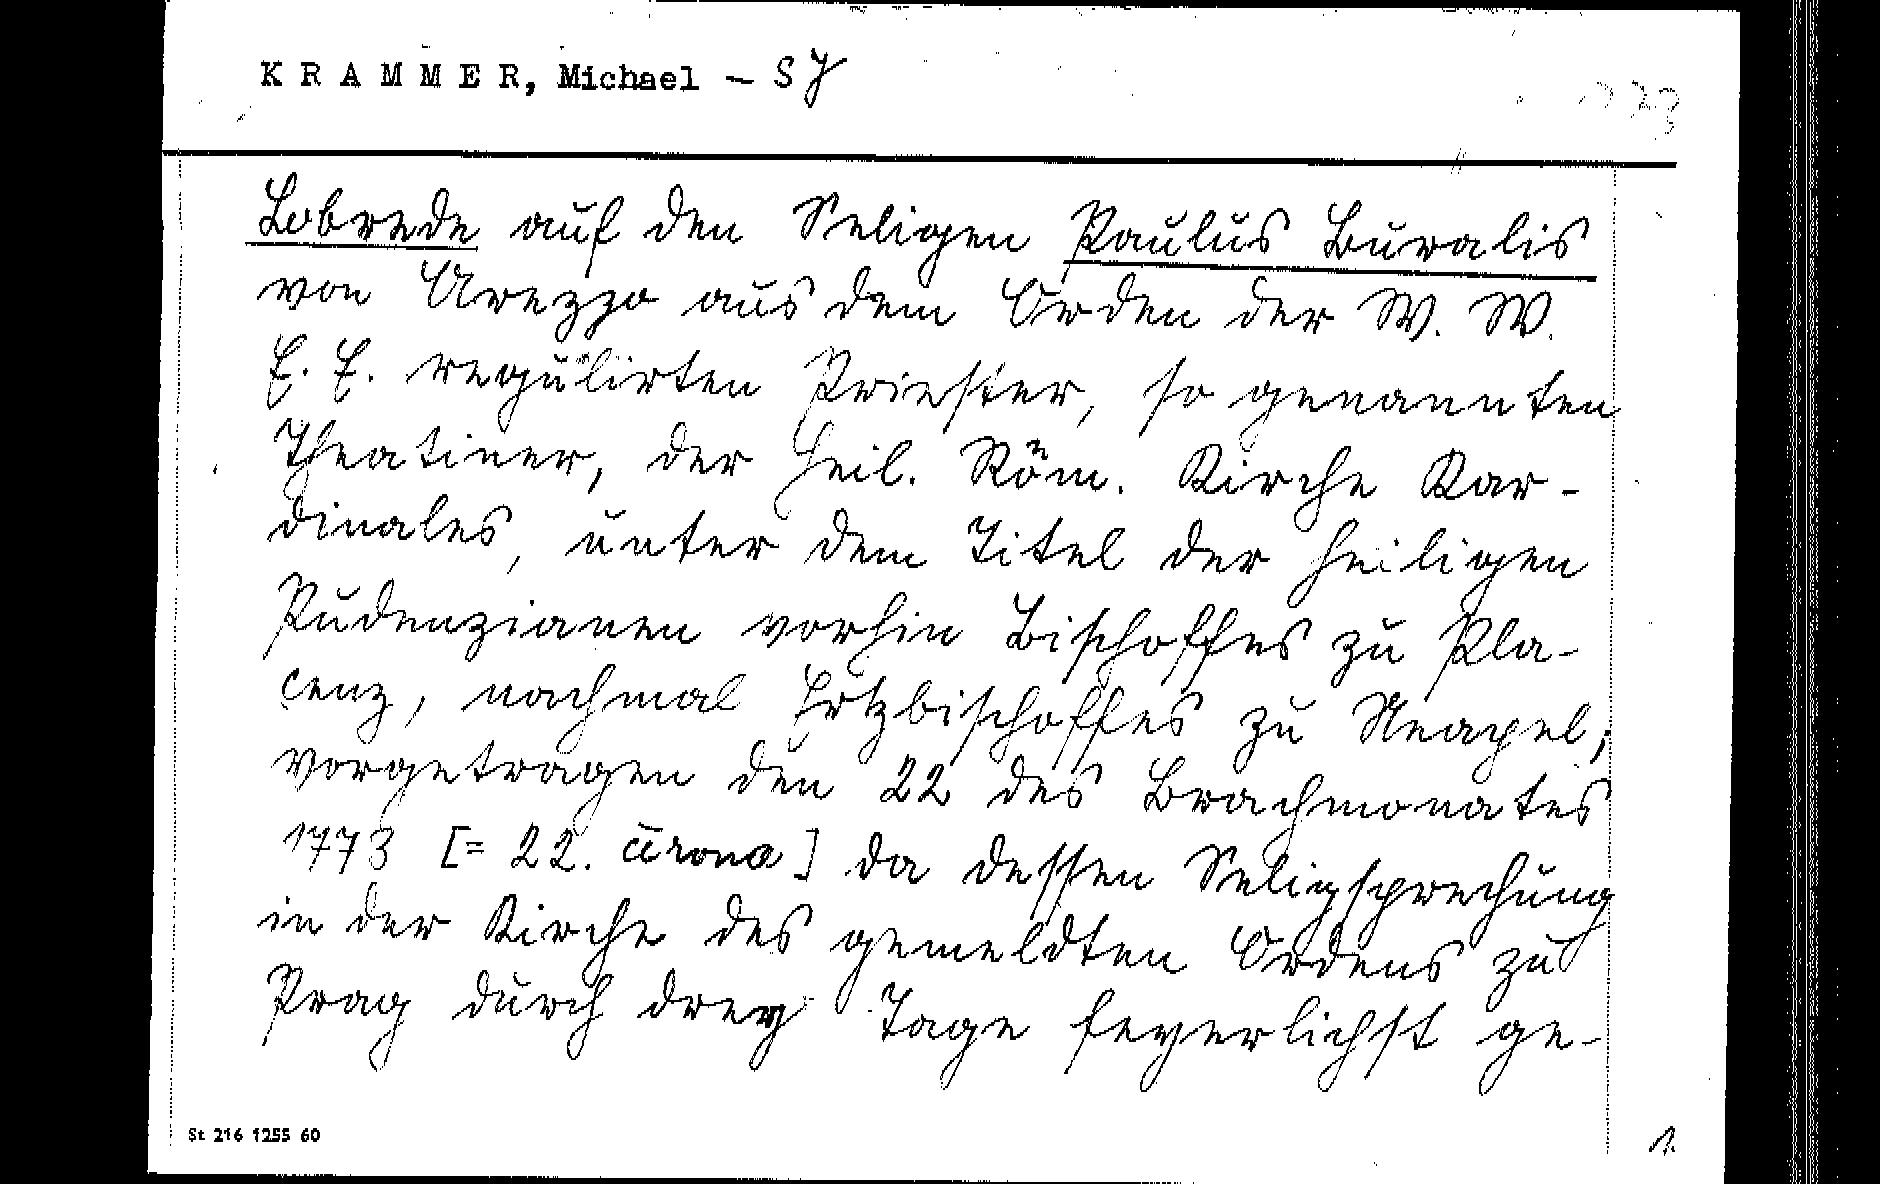 KRAMMER, Michael – SJ
1773
Lobrede auf den Seligen Paulus Buralis
von Arezzo aus dem Orden der W. W.
E. E. regulirten Priester, so genannten
Theatiner, der heil. Röm. Kirche Kar-
dinales, unter dem Titel der heiligen
Pudenzianen vorhin Bischoffes zu Pla-
cenz, nachmal Ertzbischoffes zu Neapel,
vorgetragen den 22 des Brachmonates
1773 [= 22. června] da dessen Seligsprechung
in der Kirche des gemeldten Ordens zu
Prag durch drey Tage feyerlichst ge-
St 216 1255 60
1.